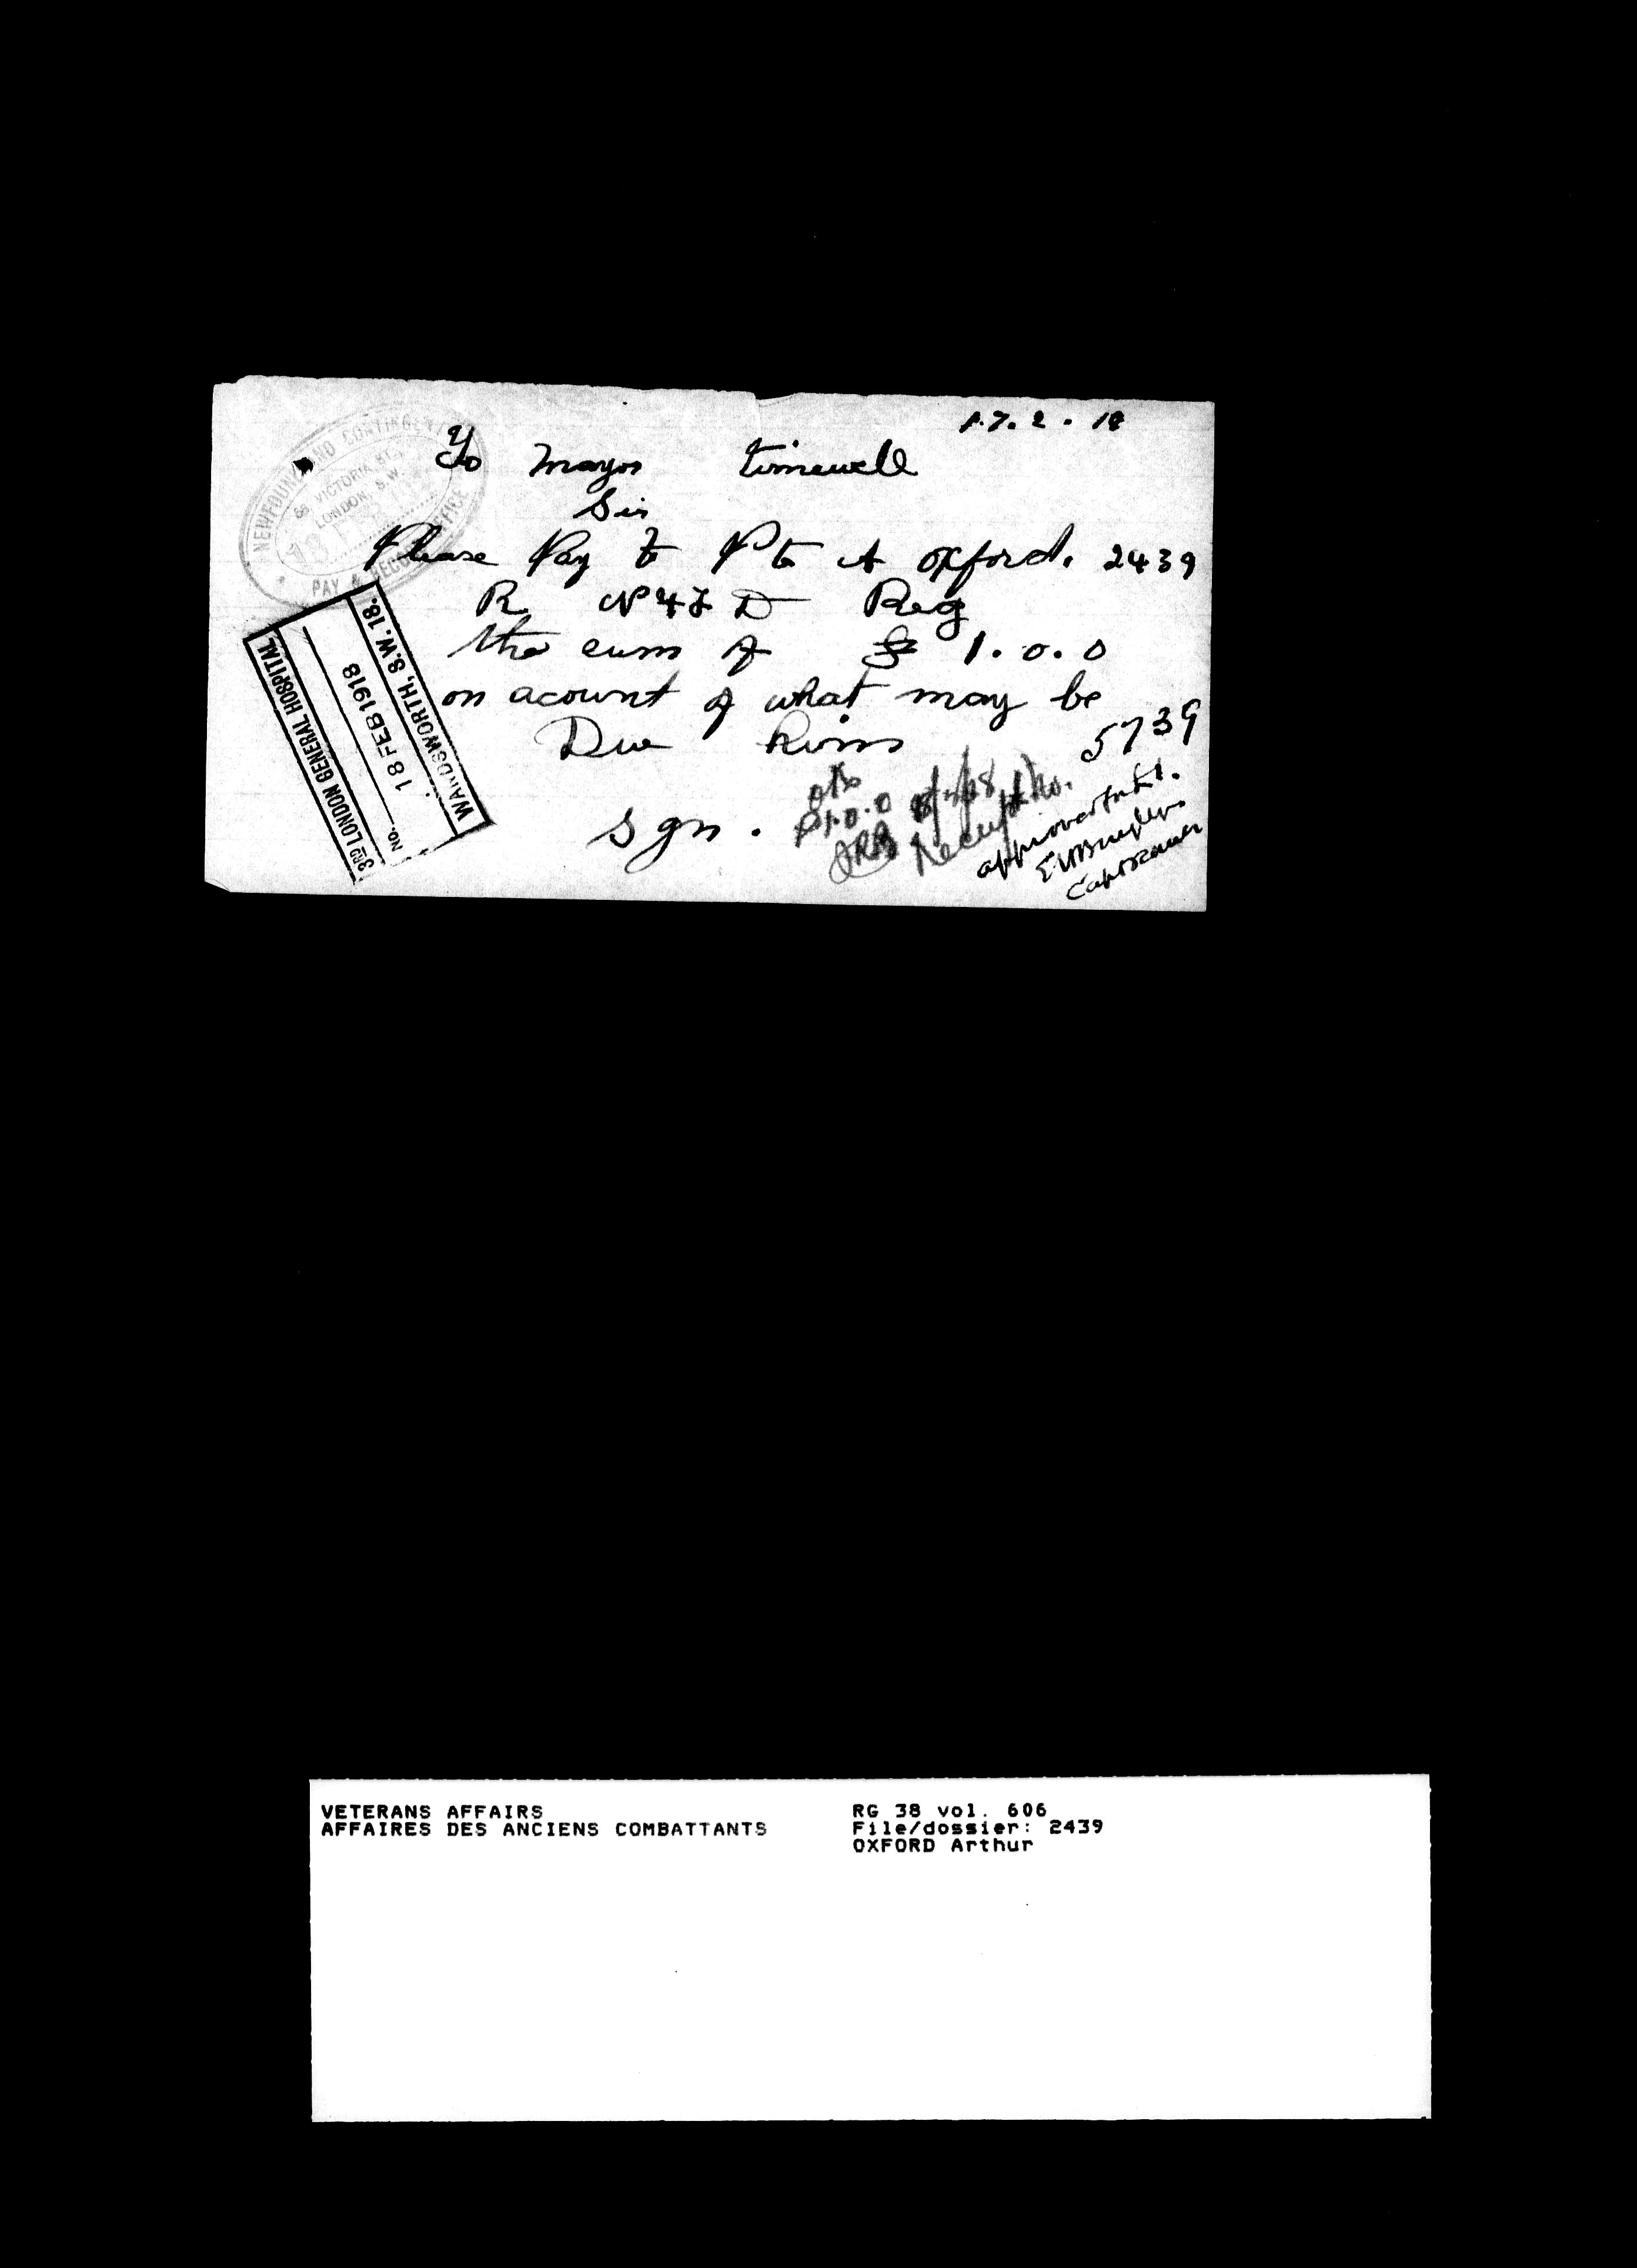 17.2.18
To Mayor timewell
Sir
Please Pay to Pte A Oxford. 2439
R N F L D Reg
the sum of £ 1.0.0
on acount of what may be
Due him
5739
Sgn.
£1.0.0
Receipt No.
approved for £1.
NEWFOUNDLAND CONTINGENT
58 VICTORIA ST.,
LONDON, S.W.
18 FEB
PAY & RECORD OFFICE
3RD LONDON GENERAL HOSPITAL
No.
18 FEB 1918
WANDSWORTH, S.W. 18.
VETERANS AFFAIRS
AFFAIRES DES ANCIENS COMBATTANTS
RG 38 vol. 606
File/dossier: 2439
OXFORD Arthur